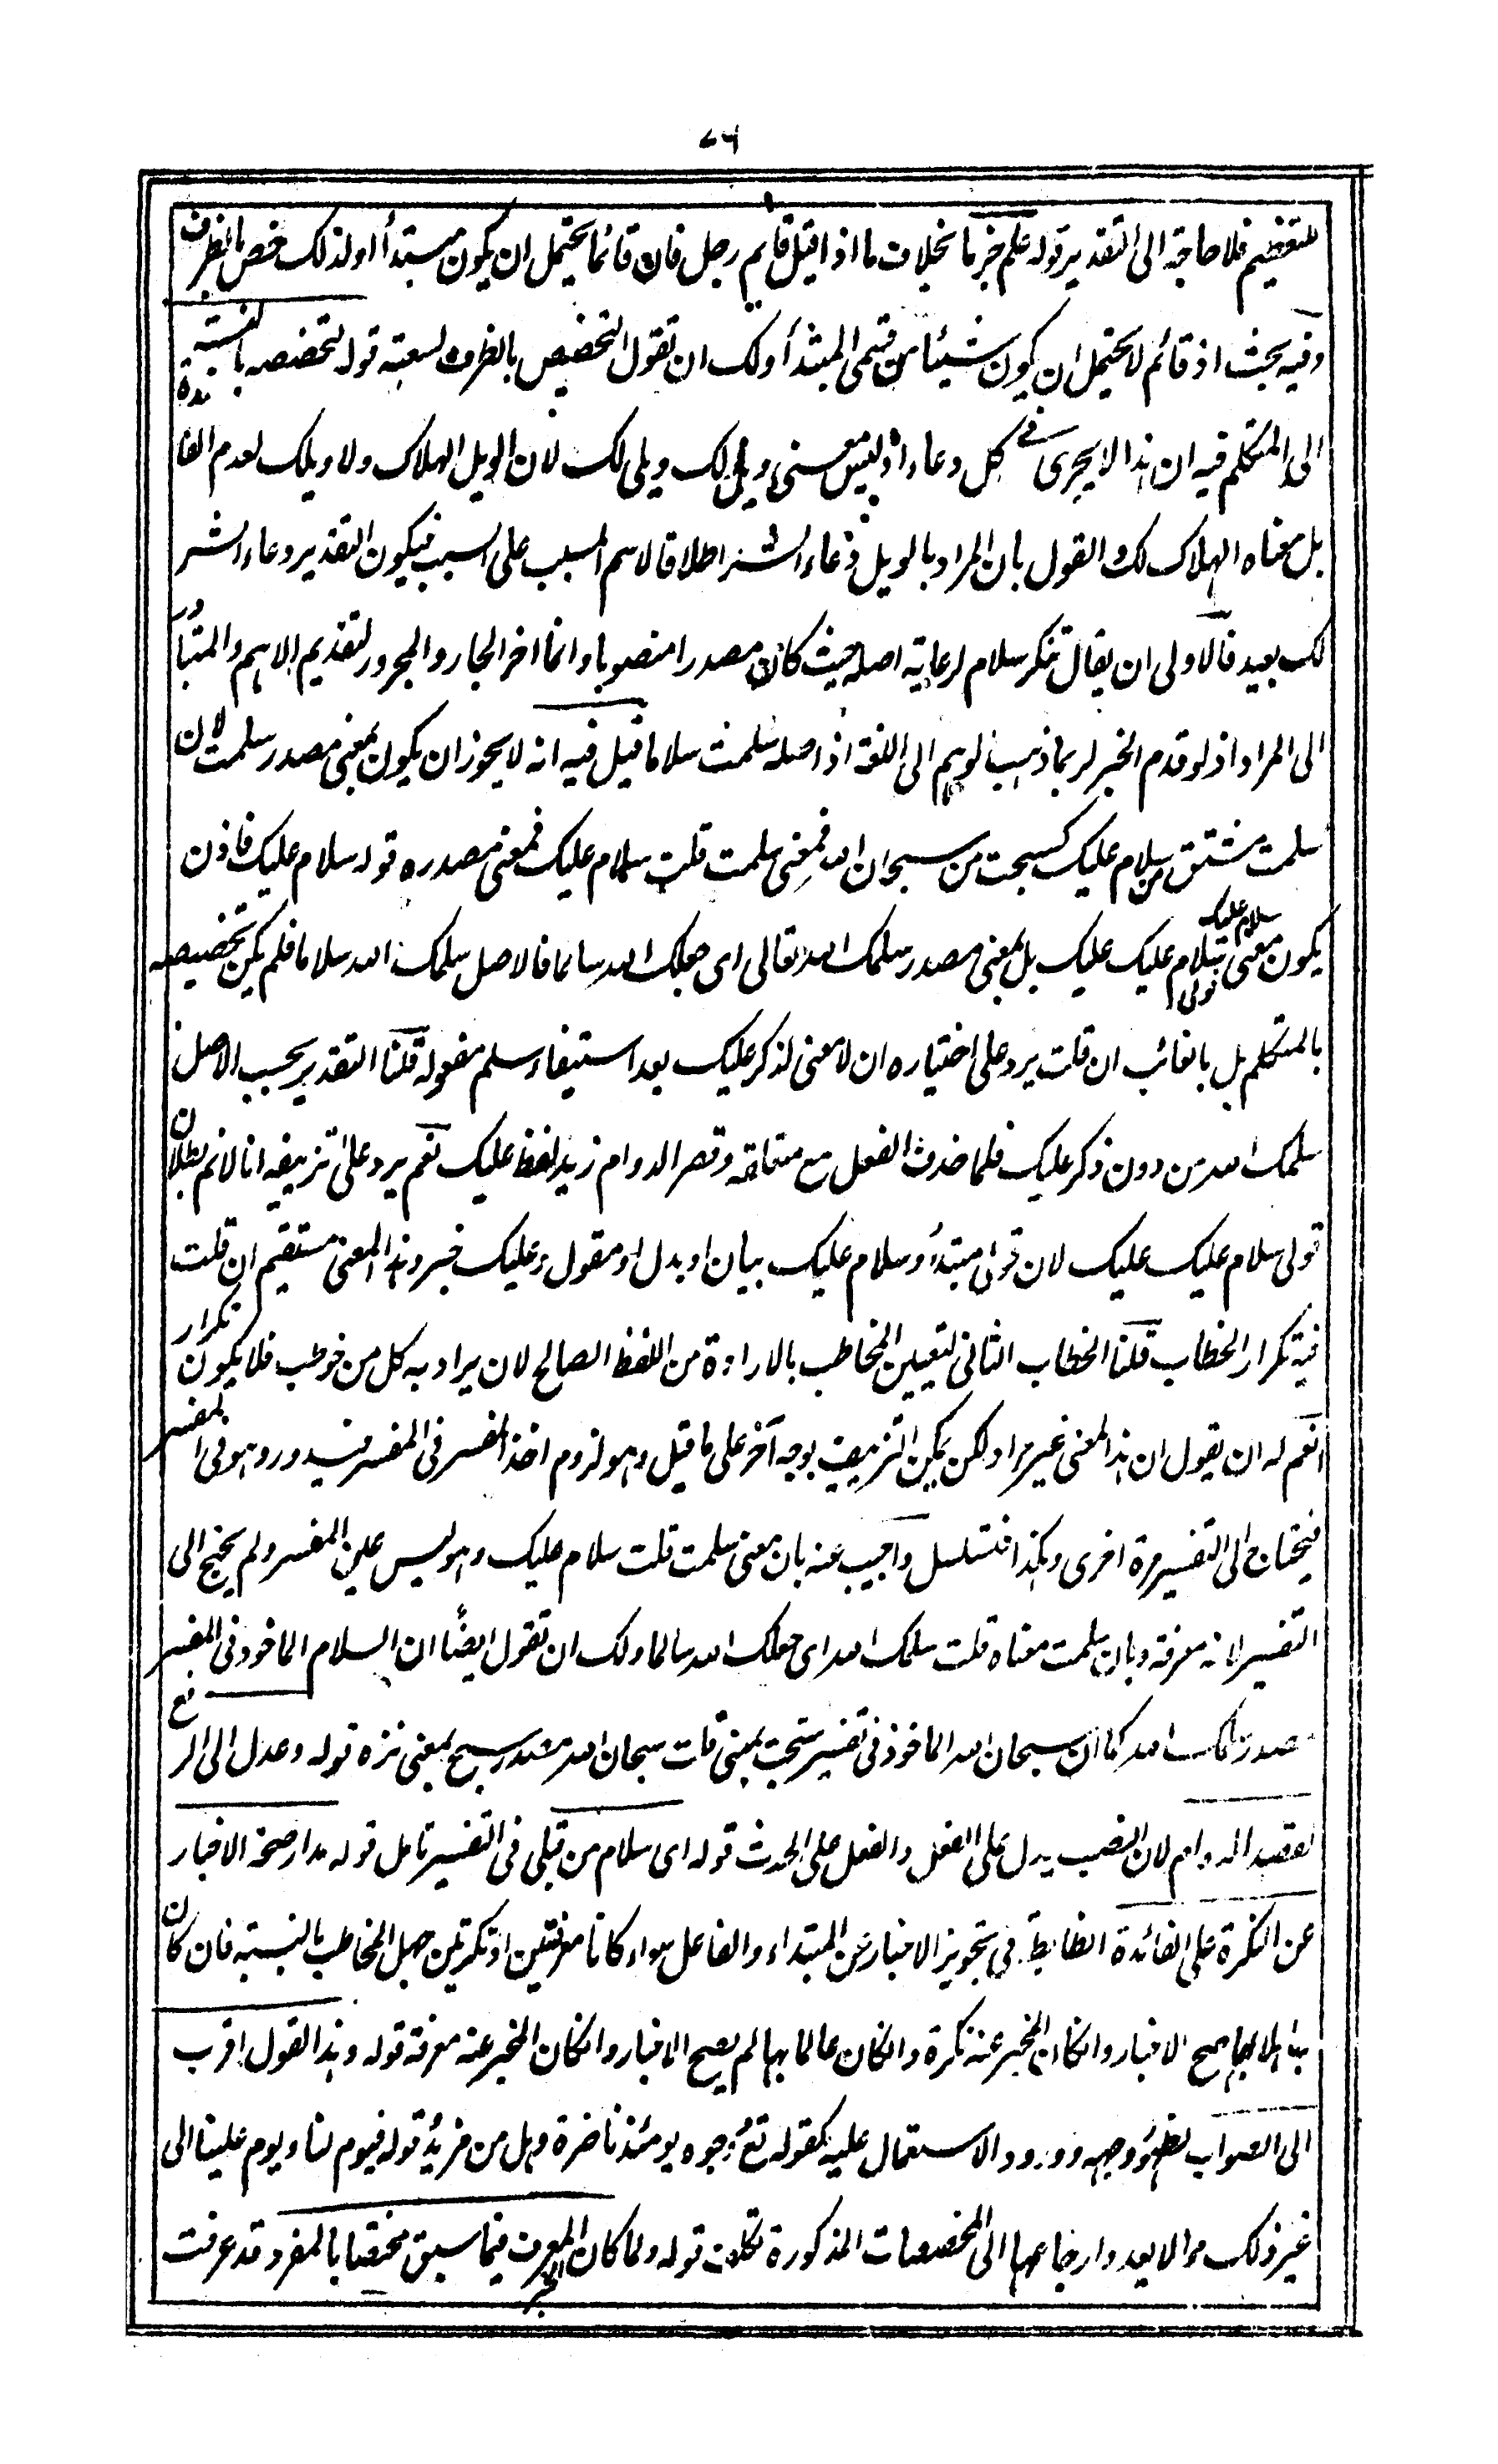 ٧٦
للتعظيم فلا حاجة الى التقدير قوله علم خبرها بخلاف ما اذا قيل قايم رجل فان قائما يحتمل ان يكون مبتدأ او لذلك خص بالظرف
وفيه بحث اذ قائم لا يحتمل ان يكون شيئا من قسمى المبتدأ ولك ان تقول التخصيص بالظرف لسعته قوله لتخصصه بالنسبة
الى المتكلم فيه ان هذا لا يجرى فى كل دعاء اذ ليس معنى ويل لك ويلى لك لان الويل الهلاك ولا ويلك لعدم الفائدة
بل معناه الهلاك لك والقول بان المراد بالويل دعاء الشر اطلاقا لاسم المسبب على السبب فيكون التقدير دعاء الشر
لك بعيد فالاولى ان يقال تنكر سلام لرعاية اصله حيث كان مصدرا منصوبا وانما اخر الجار والمجرور لتقديم الاهم والمتبادر
الى المراد اذ لو قدم الخبر لربما ذهب الوهم الى اللغة اذ اصله سلمت سلاما قيل فيه انه لا يجوز ان يكون بمعنى مصدر سلمت لان
سلمت مشتق من سلام عليك كسبحت من سبحان الله فمعنى سلمت قلت سلام عليك فمعنى مصدره قوله سلام عليك فاذن
يكون معنى سلام عليك قولى سلام عليك عليك بل بمعنى مصدر سلمك الله تعالى اى جعلك الله سالما فالاصل سلمك الله سلاما فلم يكن تخصيصه
بالمتكلم بل بالغائب ان قلت يرد على اختياره ان لا معنى لذكر عليك بعد استيفاء سلم مفعوله قلنا التقدير بحسب الاصل
سلمك الله من دون ذكر عليك فلما حذف الفعل مع متعلقه وقصر الدوام زيد لفظ عليك نعم يرد على تزييفه انا لا نم بطلان
قولى سلام عليك عليك لان قولى مبتدأ وسلام عليك بيان او بدل او مقول وعليك خبر وهذا المعنى مستقيم ان قلت
فيه تكرار الخطاب قلنا الخطاب الثانى لتعيين المخاطب بالارادة من اللفظ الصالح لان يراد به كل من خوطب فلا يكون تكرار
نعم له ان يقول ان هذا المعنى غير مراد ولكن يمكن التزييف بوجه آخر على ما قيل وهو لزوم اخذ المفسر فى المفسر فيدور وهو فى المفسر
فيحتاج الى التفسير مرة اخرى وهكذا فتسلسل واجيب عنه بان معنى سلمت قلت سلام عليك وهو ليس عين المفسر ولم يحتج الى
التفسير لانه معرفة وبان سلمت معناه قلت سلمك الله اى جعلك الله سالما ولك ان تقول ايضًا ان السلام الماخوذ فى المفسر
مصدر سلمك الله كما ان سبحان الله الماخوذ فى تفسير سبحت بمعنى قلت سبحان الله مصدر سبح بمعنى نزه قوله وعدل الى الرفع
لقصد الدوام لان النصب يدل على الفعل والفعل على الحدث قوله اى سلام من قبلى فى التفسير تامل قوله مدار صحة الاخبار
عن النكرة على الفائدة الضابطة فى تجويز الاخبار عن المبتداء والفاعل سواء كانا معرفتين او نكرتين جهل المخاطب بالنسبة فان كان
جاهلا بها صح الاخبار وان كان المخبر عنه نكرة وان كان عالما بها لم يصح الاخبار وان كان المخبر عنه معرفة قوله وهذا القول اقرب
الى الصواب لظهور وجهه وورود الاستعمال عليه كقوله تع وجوه يومئذ ناضرة وهل من مزيد قوله فيوم لنا ويوم علينا الى
غير ذلك مما لا يعد وارجاعها الى المخصصات المذكورة تكلف قوله ولما كان الخبر المعرف فيما سبق مختصا بالمفرد قد عرفت